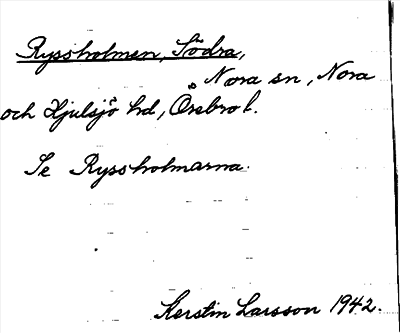 Ryssholmen, Södra,
Nora sn, Nora
och Hjulsjö hd, Örebro l.
Se Ryssholmarna.
Kerstin Larsson 1942.